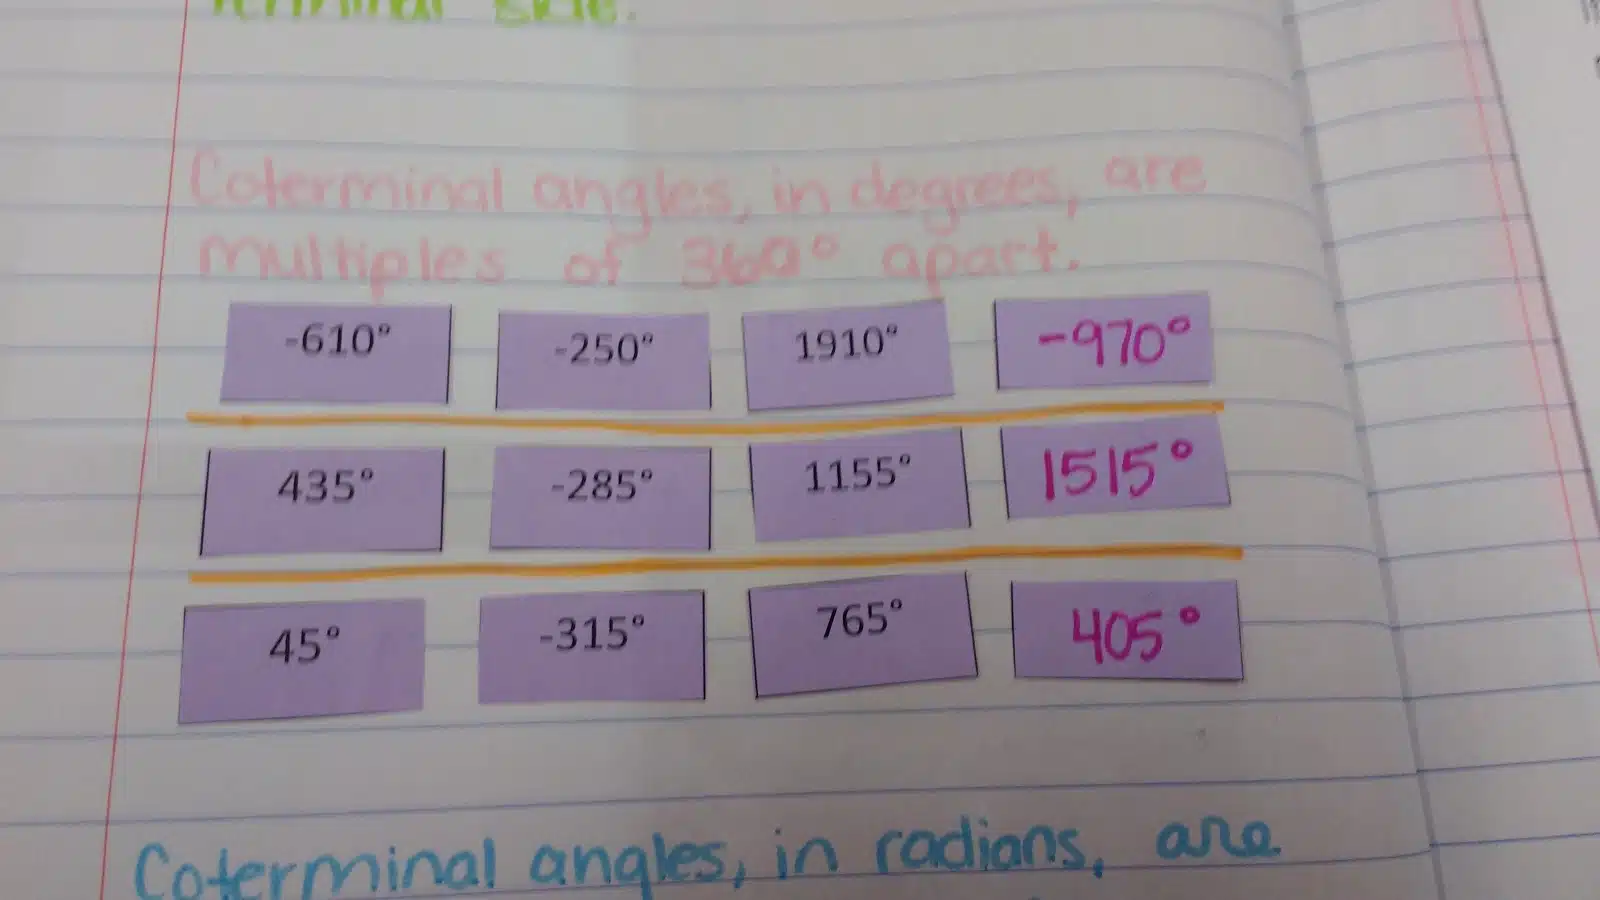 terminal side.
Coterminal angles, in degrees, are
multiples of 360° apart.
-610° -250° 1910° -970°
435° -285° 1155° 1515°
45° -315° 765° 405°
Coterminal angles, in radians, are